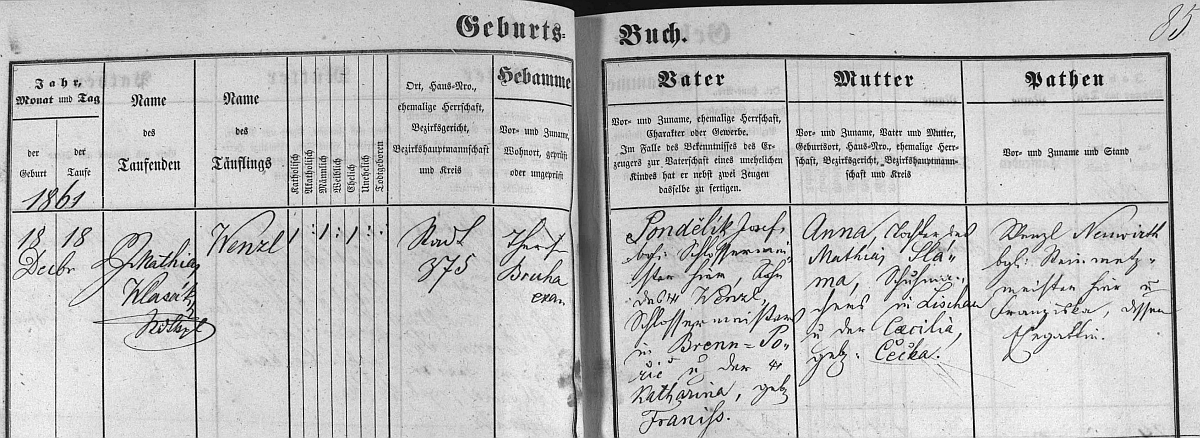 Geburts-
Buch.
85
Jahr,
Monat und Tag
der
Geburt
der
Taufe
1861
Name
des
Taufenden
Name
des
Täuflings
Katholisch
Akatholisch
Männlich
Weiblich
Ehelich
Unehelich
Todtgeboren
Ort, Haus-Nro.,
ehemalige Herrschaft,
Bezirksgericht,
Bezirkshauptmannschaft
und Kreis
Hebamme
Vor- und Zuname,
Wohnort, geprüft
oder ungeprüft
Vater
Vor- und Zuname, ehemalige Herrschaft,
Charakter oder Gewerbe.
Im Falle des Bekenntnisses des Er-
zeugers zur Vaterschaft eines unehelichen
Kindes hat er nebst zwei Zeugen
dasselbe zu fertigen.
Mutter
Vor- und Zuname, Vater und Mutter,
Geburtsort, Haus-Nro., ehemalige Herr-
schaft, Bezirksgericht, Bezirkshauptmann-
schaft und Kreis
Pathen
Vor- und Zuname und Stand
18 18
Decbr
Mathias
Klasák
Wenzl
1 : 1 : 1 : :
Stadt
375
Theres
Bruha
exa-
Pondělík Josef,
bgl: Schlossermei-
ster hier, Sohn
des Wenzl,
Schlossermeisters
in Brenn-Po-
řič u der
Katharina, geb
Franiss.
Anna, Tochter des
Mathias Slá-
ma, Schuhma-
chers in Lischau
u der Cæcilia,
geb: Čečka.
Wenzl Neuwirth
bgl: Steinmetz-
meister hier u
Franziska, dessen
Ehegattin.